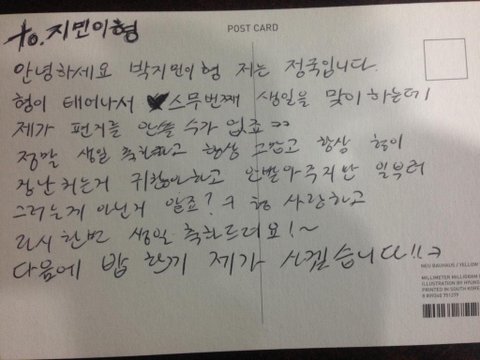 POST CARD
to. 지민이형
안녕하세요 박지민이형 저는 정국입니다.
형이 태어나서 스무번째 생일을 맞이하는데
제가 편지를 안쓸 수가 없죠 ㅋㅋ
정말 생일 축하하고 항상 고맙고 항상 형이
장난치는거 귀찮아하고 안받아주지만 일부러
그러는게 아닌거 알죠? ㅋ 형 사랑하고
다시한번 생일 축하드려요!~
다음에 밥 한끼 제가 사겠습니다!!
NEU BAUHAUS / YELLOW
MILLIMETER MILLIGRAM
ILLUSTRATION BY
PRINTED IN SOUTH KOREA